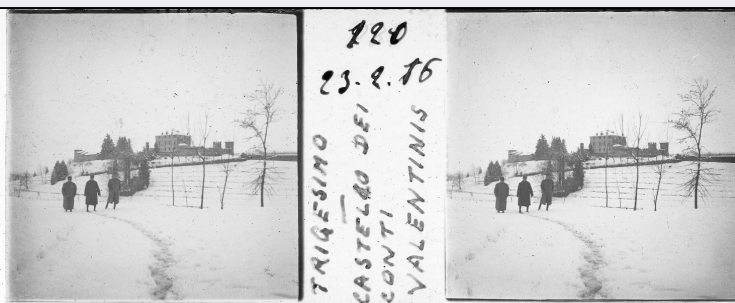 220
23.2.16
TRIGESIMO
CASTELLO DEI
CONTI
VALENTINIS